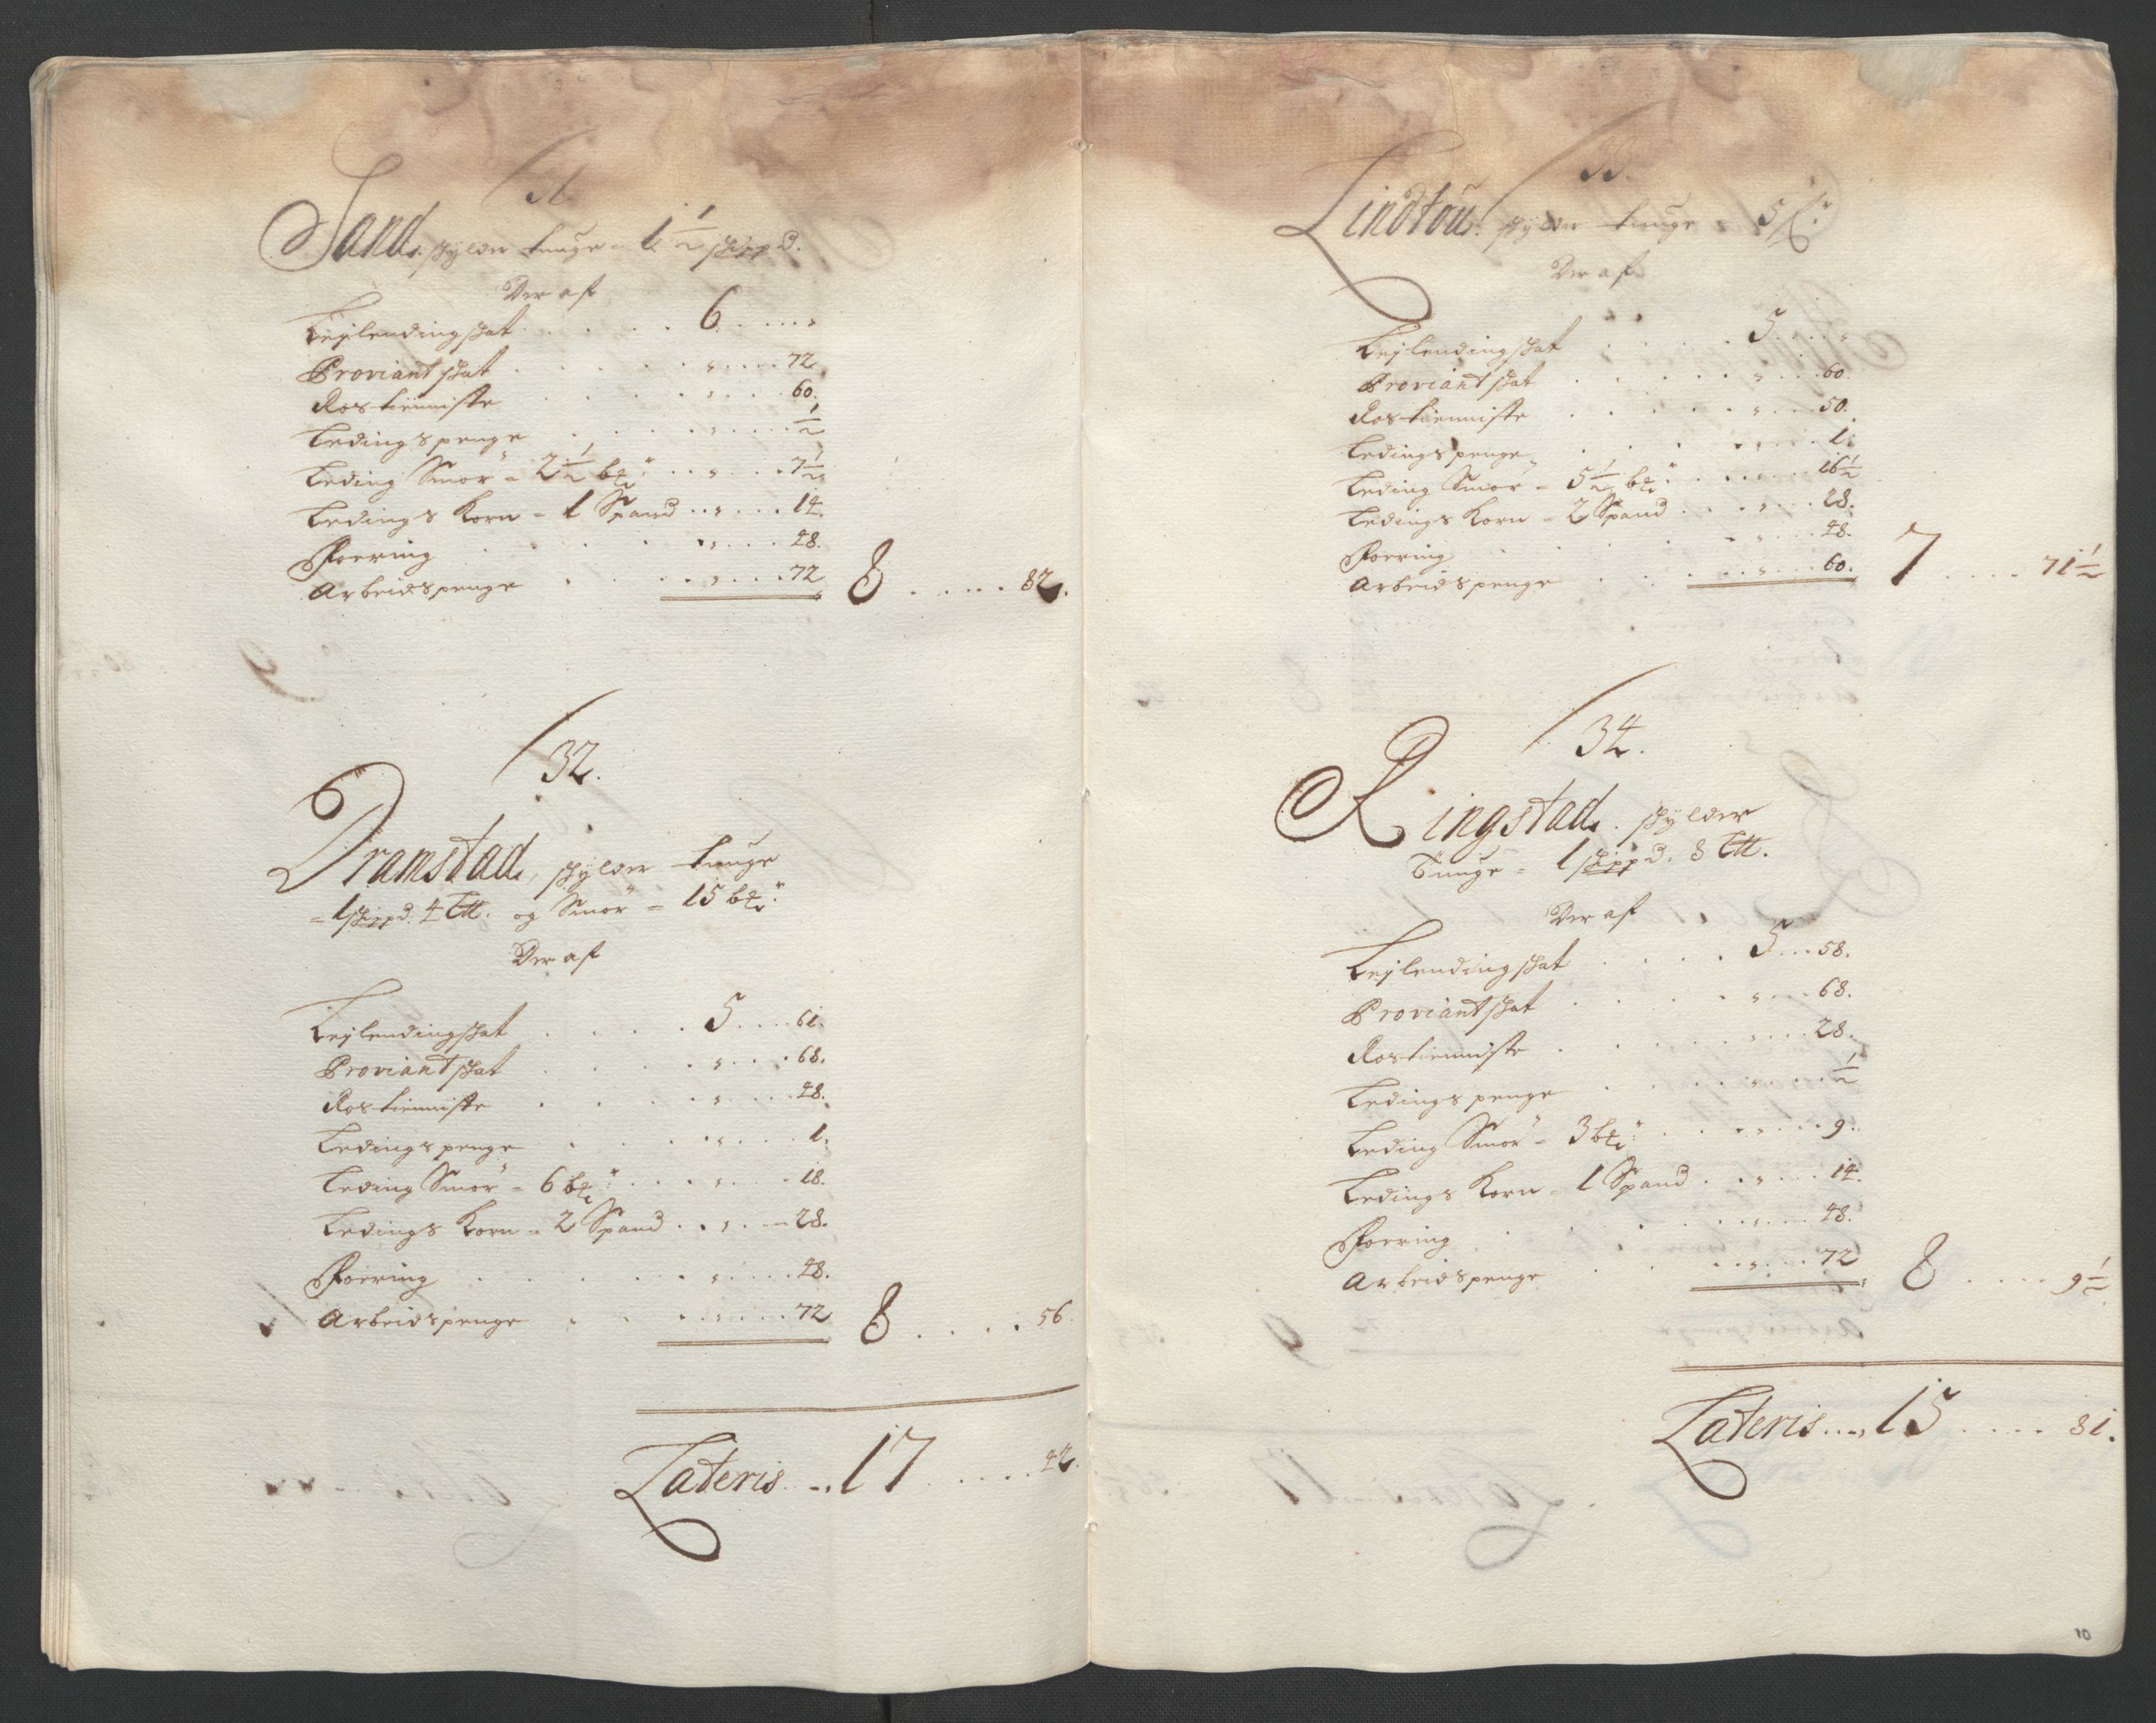 31.
Sand. skylder tunge - 1 1/2 skippd.
Der af
Leylendingskat . . . . . 6 . . . . „
Proviantskat . . . . . „ . . . . 72
Rostienniste . . . . . „ . . . . 60.
Ledingspenge . . . . „ . . . . 1/2
Leding Smör - 2 1/2 bℓ. . . „ . . . 7 1/2
Ledings Korn - 1 Spand . . „ . . . 14.
Foering . . . . . „ . . . 48.
Arbeidspenge . . . . „ . . . 72 8 . . . . . 82.
32.
Dramstad, skylder tunge
= 1 skippd. 4 ℔. og Smör = 15 bℓ.
Der af
Leylendingskat . . . . 5 . . . . 61.
Proviantskat . . . . „ . . . 68.
Rostienniste . . . . . „ . . . . 48.
Ledingspenge . . . . „ . . . . 1.
Leding Smör - 6 bℓ. . . . „ . . . 18.
Ledings Korn - 2 Spand . . „ . . 28.
Foering . . . . . . „ . . . . 48.
Arbeidspenge . . . . „ . . . 72 8 . . . . 56
Lateris . . . 17 . . . . 42.
33.
Lindtou. skylder tunge - 5
Der af
Leylendingskat . . . . 5 . . . . „
Proviantskat . . . . . „ . . . 60.
Rostienniste . . . . . „ . . . 50.
Ledingspenge . . . . „ . . . 1.
Leding Smör - 5 1/2 bℓ. . . . . . 16 1/2
Ledings Korn - 2 Spand . . . „ . . . 28.
Foering . . . . . „ . . . 48.
Arbeidspenge . . . . „ . . . 60. 7 . . . . 71 1/2
34.
Ringstad. skylder
Tunge = 1 skippd. 8 ℔.
Der af
Leylendingskat . . . . 5 . . . 58.
Proviantskat . . . . . „ . . . 68.
Rostienniste . . . . . „ . . . 28.
Ledingspenge . . . . „ . . . 1/2
Leding Smör - 3 bℓ. . . . „ . . . 9.
Ledings Korn - 1 Spand . . „ . . . 14.
Foering . . . . . „ . . . 48.
Arbeidspenge . . . . „ . . . 72 8 . . . . 9 1/2
Lateris . . . 15 . . . . 81.
10